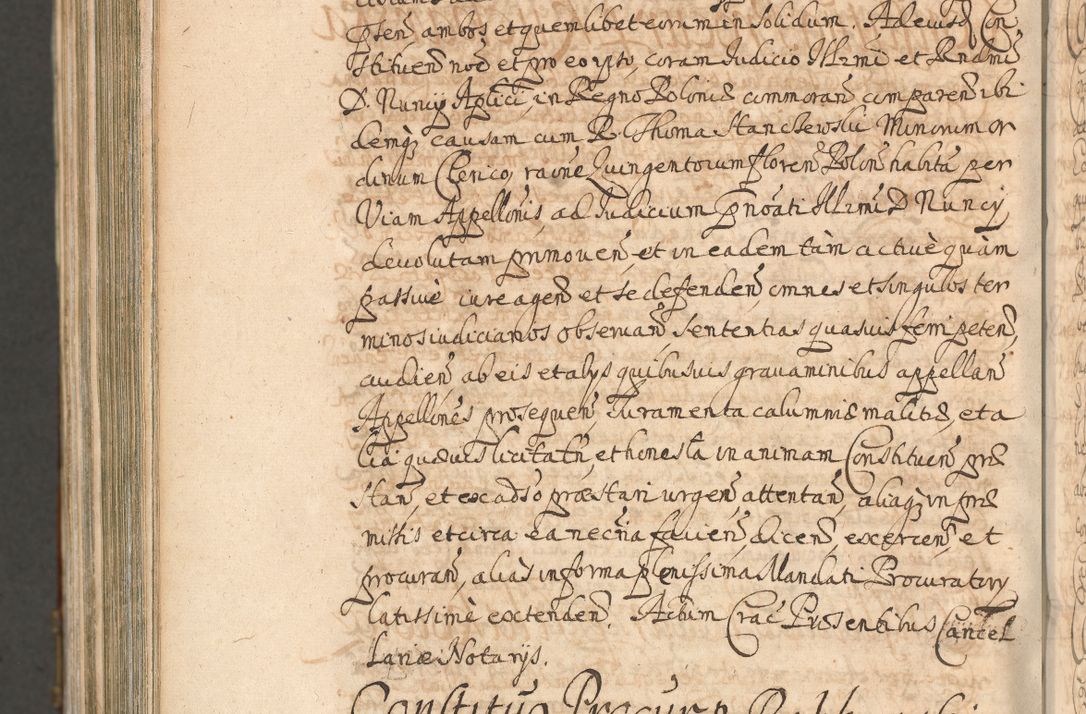 psen, ambos et quemlibet eorum in solidum. Ad eiusd Con
stituen noe et pro eo ipso, coram Judicio Illrmi et Rndmi
D. Nuncij Aplici, in Regno Poloniæ commoran comparen ibi
demqz causam cum R. Thoma Stanczewski Minorum or
dinum Clerico, raone Quingentorum floren Polon habita per
Viam Appellonis, ad Judicium pnoati Illrmi D Nuncij,
devolutam promouen, et in eadem tàm actiuè quàm
passiuè iure agen et se defenden, omnes et singulos ter
minos iudiciarios obseruan, sententias quasuis ferri peten,
audien, ab eis et alijs quibusuis grauaminibus appellan
Appellones prosequen, Iuramenta calumniæ malitiæ, et a
lia quæuis licita tn, et honesta in animam Constituen præ
stan, et ex adso præstari urgen, attentan, aliaqz in præ
missis et circa ea necria facien, dicen, exercen, et
procuran, alias in forma plenissima Mandati Procuratorij
latissimè extenden. Actum Crac Præsentibus Cancel
lariæ Notarijs.
Constitutio Procurm